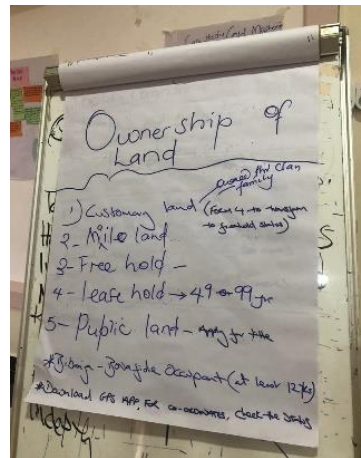 Ownership of
Land
owned thru Clan
family
1) Customary land (Form 4 to transform
to freehold status)
2- Mailo land
3- Free hold -
4- Lease hold → 49 or 99 yrs
5- Public land - Apply for title
* Bibanja - Bonafide Occupant (at least 12 yrs)
* Download GPS APP, For co-ordinates, Check the status